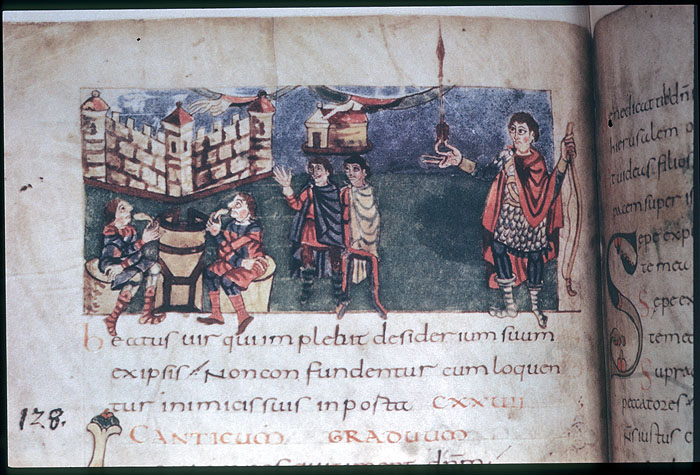 beatus uir qui implebit desiderium suum
exipsis Non confundentur cum loquen
tur inimicis suis in porta CXXVII
CANTICUM GRADUUM
128.
hierusalem
tuideas filio
pacem super i
Sepe exp
teme
Sepe ex
teme
Supra
peccatores
iustus